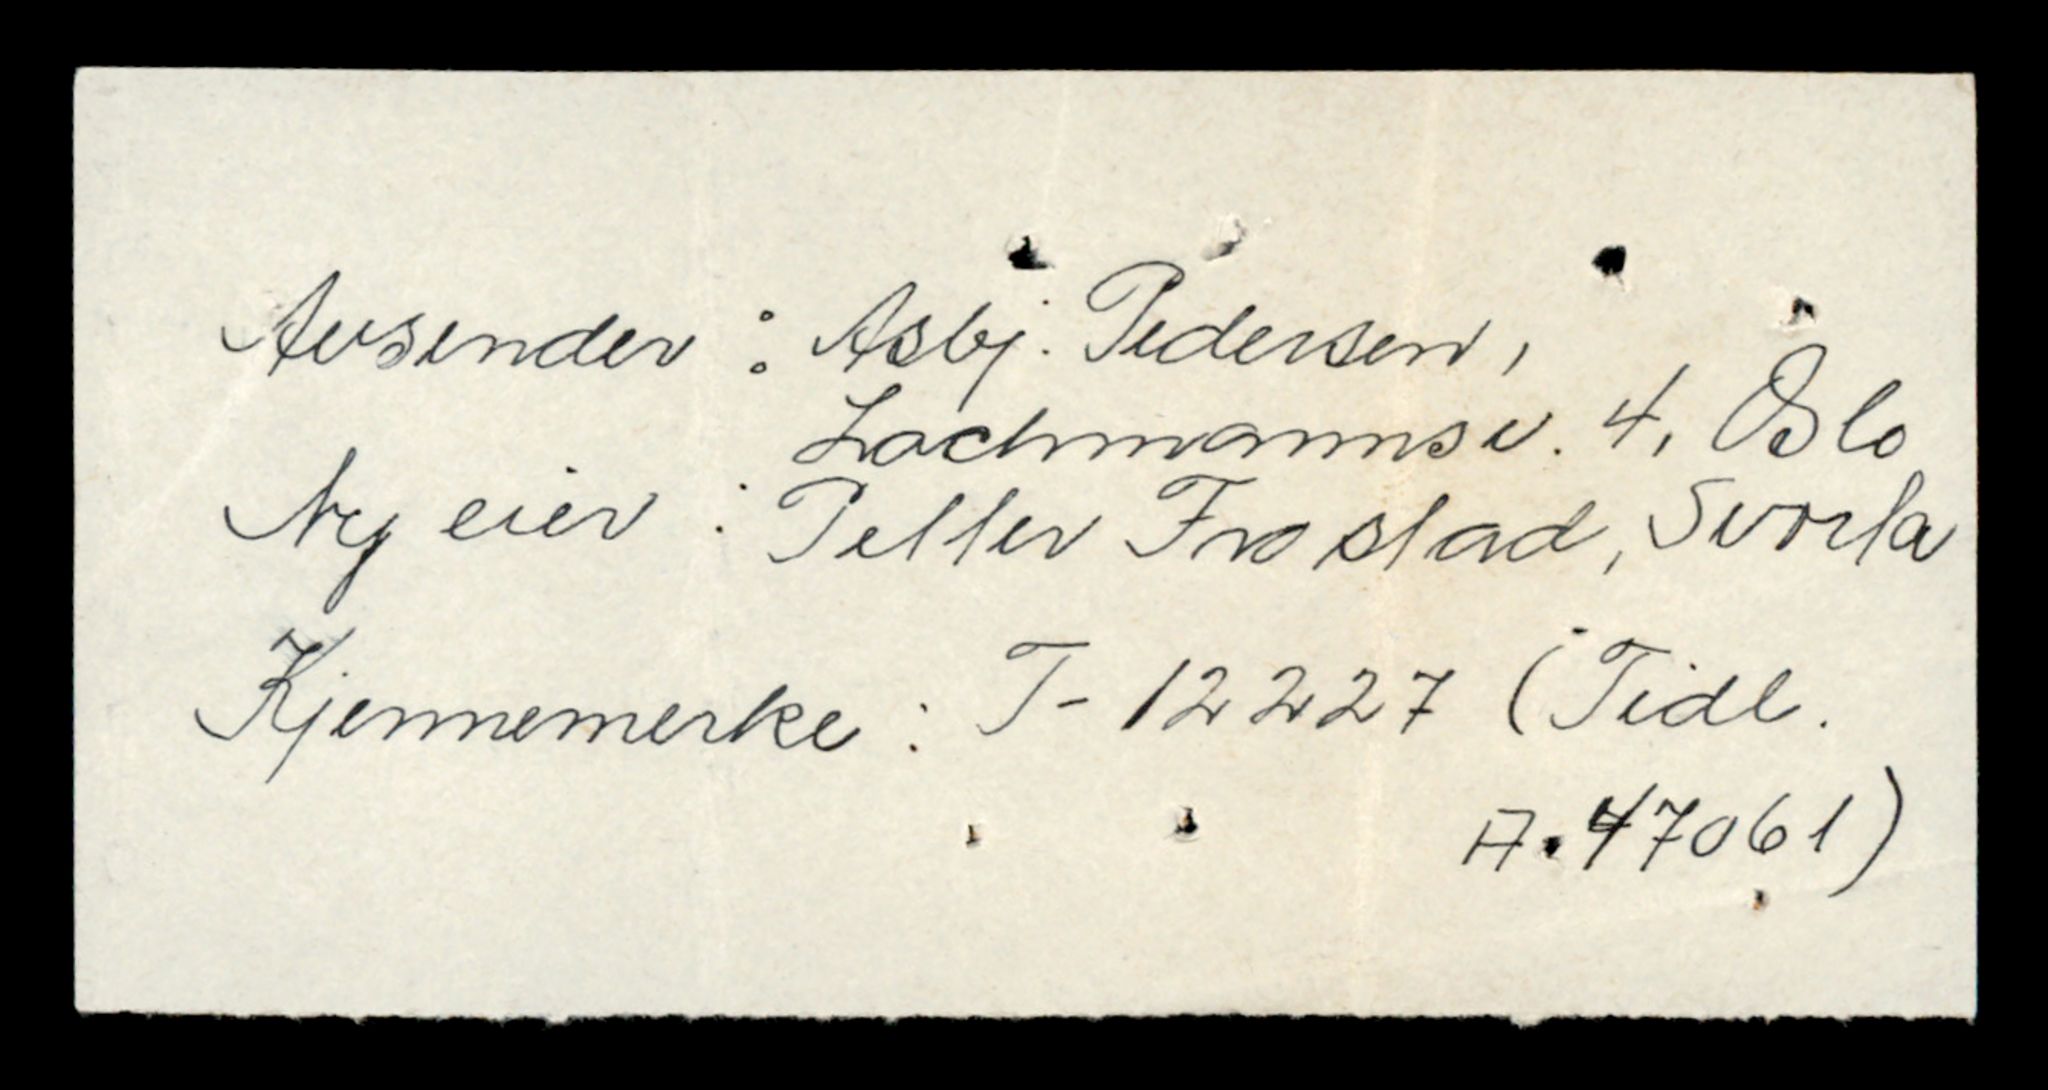 Avsender : Asbj. Pedersen,
Lachmannsv. 4, Oslo
Ny eier : Petter Frostad, Svorta
Kjennemerke : T- 12227 (Tidl.
A. 47061)